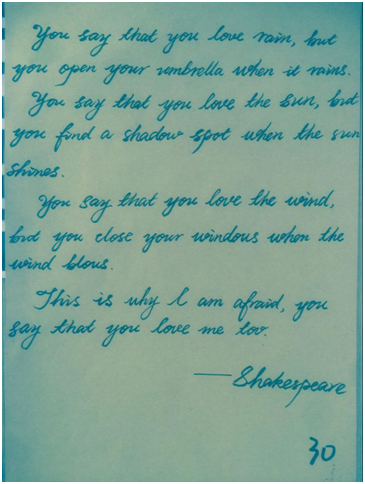 You say that you love rain, but
you open your umbrella when it rains.
You say that you love the sun, but
you find a shadow spot when the sun
shines.
You say that you love the wind,
but you close your windows when the
wind blows.
This is why I am afraid, you
say that you love me too.
—Shakespeare
30